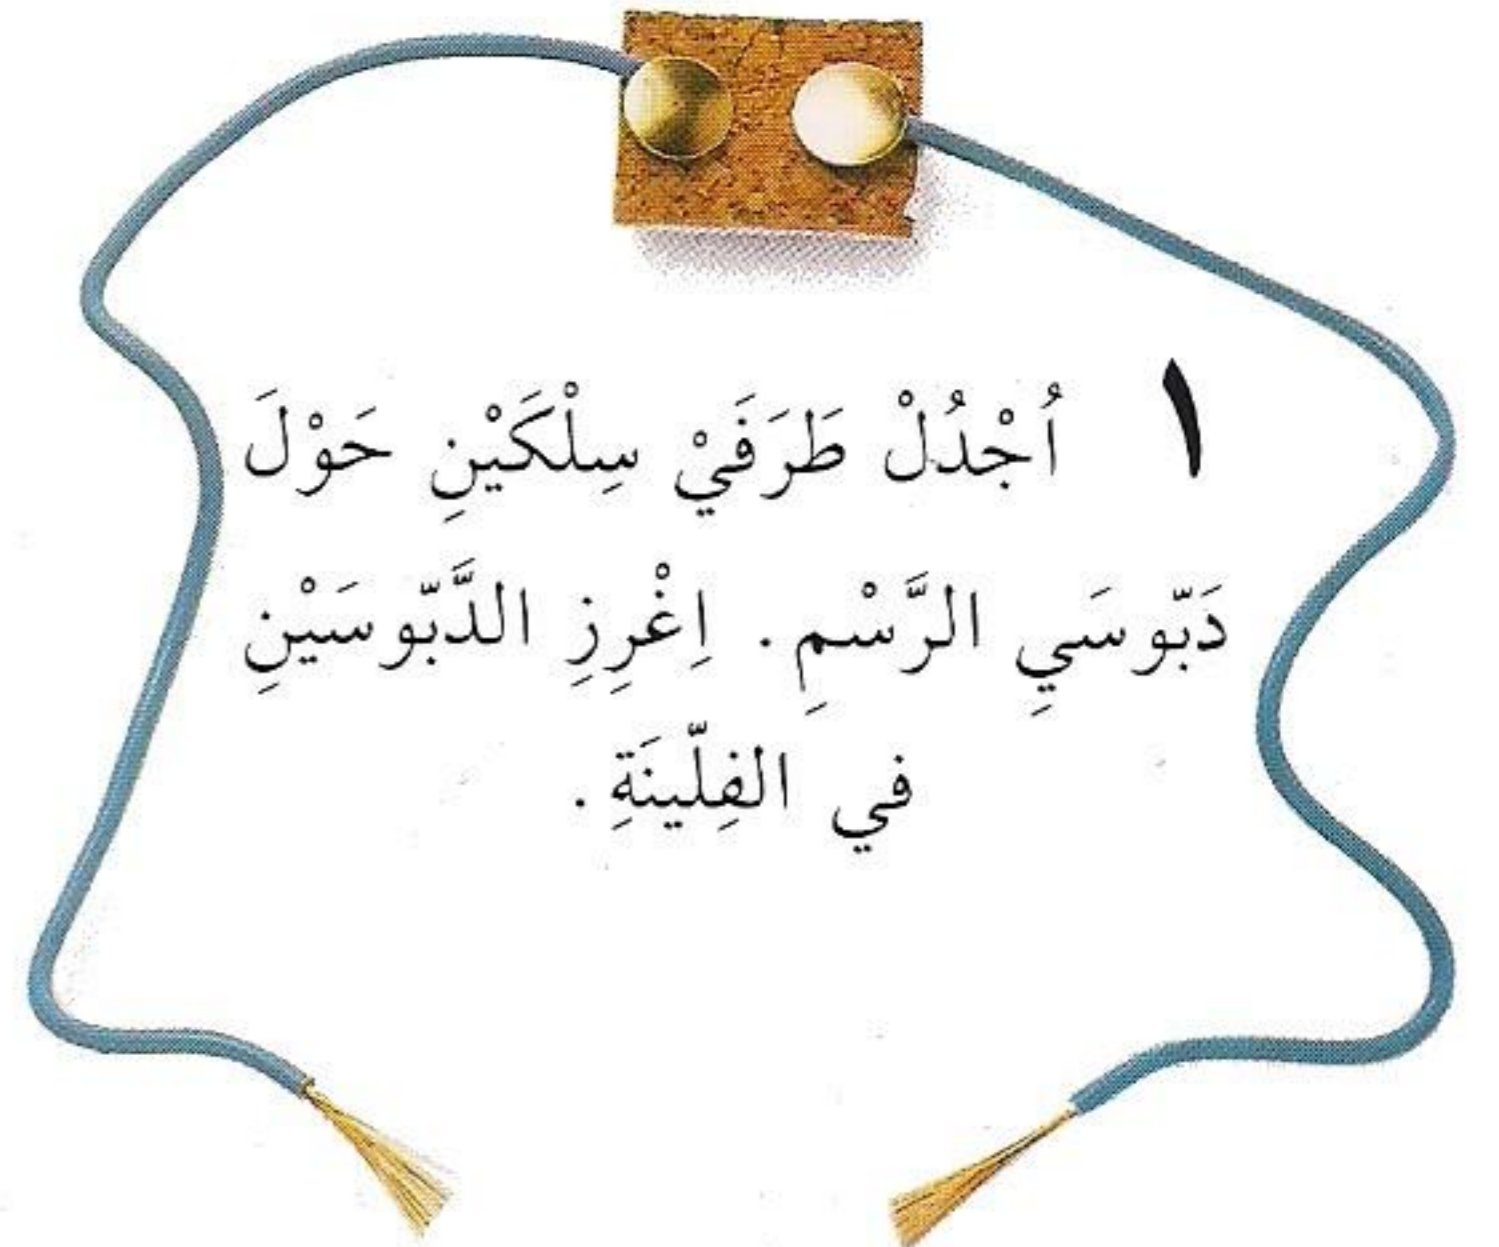 ١ اُجْدُلْ طَرَفَيْ سِلْكَيْنِ حَوْلَ
دَبّوسَيِ الرَّسْمِ. اِغْرِزِ الدَّبّوسَيْنِ
في الفِلّينَةِ.